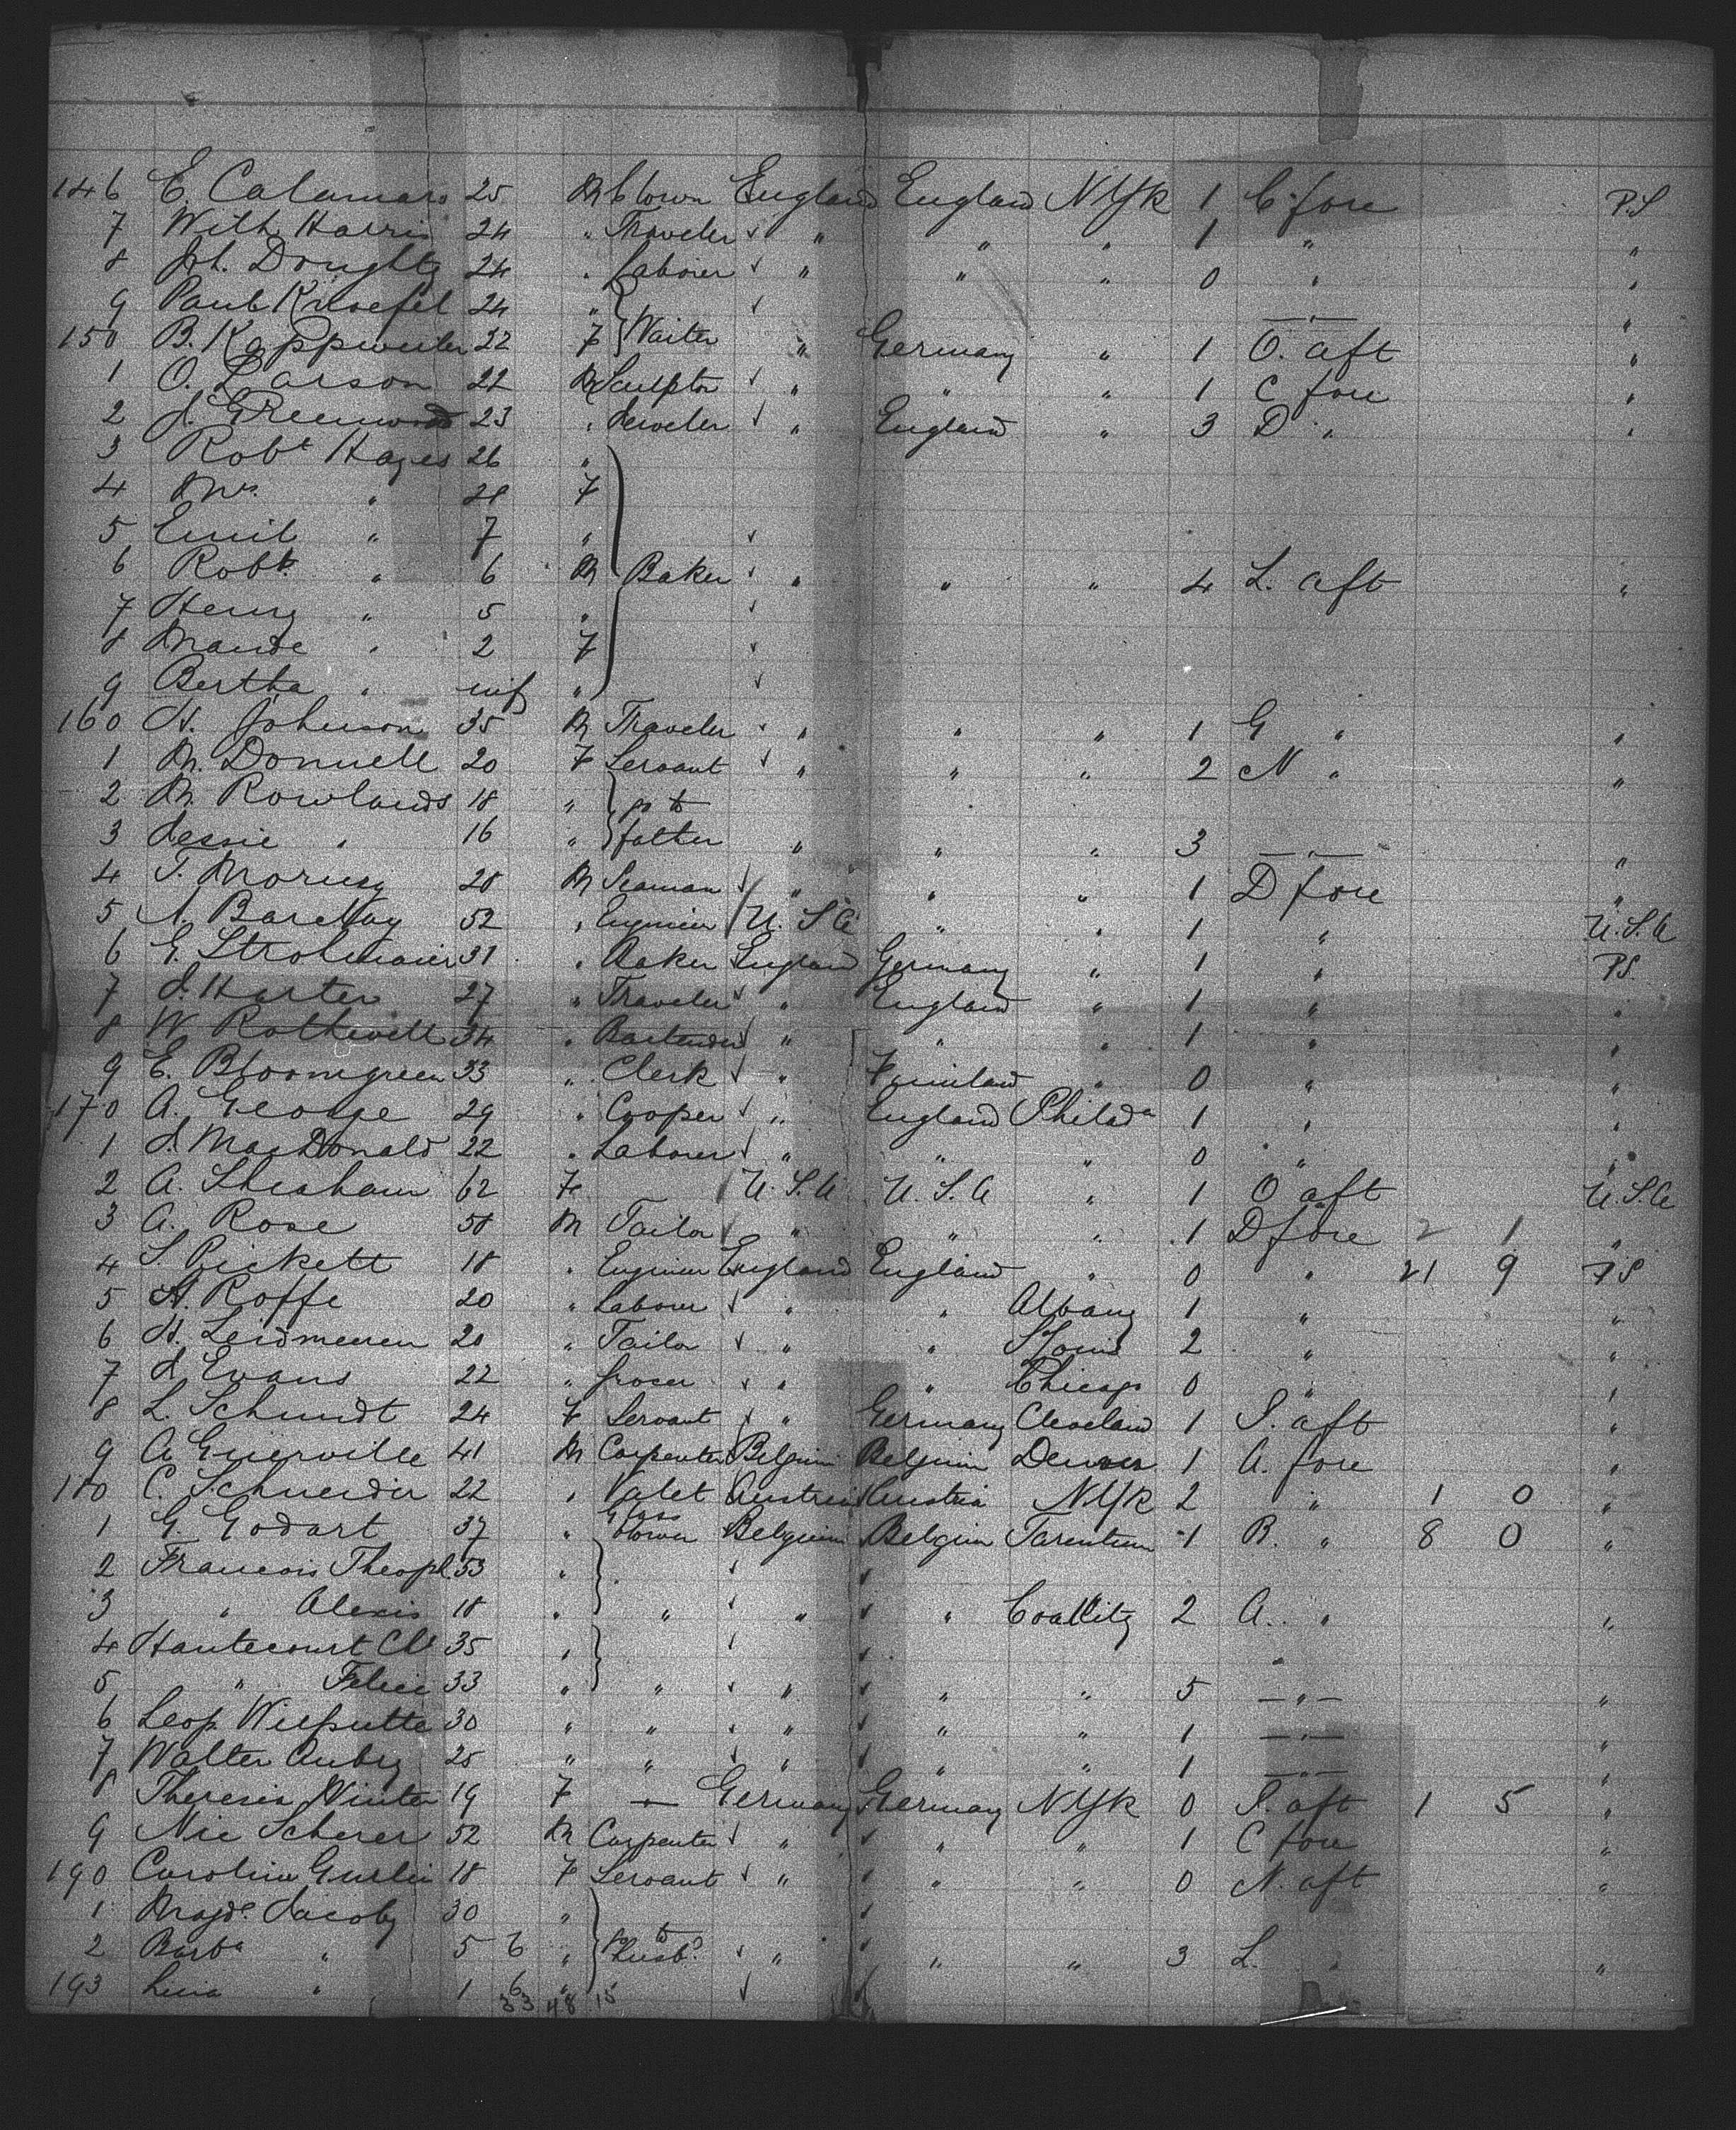 146 E. Calamaro 25 M Clown England England NYk 1 C. fore P.S
7 Wilh Harris 24 " Traveler " " " 1 " "
8 Jh. Doughty 24 " Laborer " " " 0 " "
9 Paul Knoefel 24 " —"— "
150 B. Kappweiler 22 F Waiter " Germany " 1 O. aft "
1 O. Larson 22 M Sculptor " " " 1 C fore "
2 J. Greenwood 23 " Jeweler " England " 3 D " "
3 Robt Hayes 26 "
4 Mrs. " 28 F
5 Emil " 7 "
6 Robt. " 6 M Baker " " " 4 L. aft "
7 Henry " 5 "
8 Maude " 2 F
9 Bertha " inf "
160 H. Johnson 35 M Traveler " " " 1 G " "
1 M. Donnell 20 F Servant " " " 2 N " "
2 M. Rowlands 18 " go to
3 Jessie " 16 " father " " " 3 —"— "
4 T. 28 M Seaman " " " 1 D fore "
5 A. Barclay 52 " Engineer U. S A " " 1 " U.S.A
6 G. Strohmaier 31 " Baker England Germany " 1 " P.S
7 J. Harter 27 " Traveler " England " 1 " "
8 W Rothwell 34 " Bartender " " " 1 " "
9 E. Bloomgreen 33 " Clerk " Finnland " 0 " "
170 A. George 29 " Cooper " England Philada 1 " "
1 J. MacDonald 22 " Laborer " " " 0 " "
2 A. 62 F U.S.A U.S.A " 1 O aft U.S.A
3 A. Rose 58 M Tailor " " " 1 D fore 2 1 "
4 S. Pickett 18 " Engineer England England " 0 " 21 9 P.S
5 H. Roffe 20 " Laborer " " Albany 1 " "
6 H. 20 " Tailor " " 2 " "
7 J Evans 22 " Grocer " " Chicago 0 " "
8 L. Schmidt 24 F Servant " Germany Cleveland 1 S. aft "
9 A Guerville 41 M Carpenter Belgium Belgium Denver 1 A. fore "
180 C. Schneider 22 " Valet Austria Austria NYk 2 " 1 0 "
1 G. Godart 37 " Glass blower Belgium Belgium Tarentum 1 B. " 8 0 "
2 Francois Theoph. 53 "
3 " Alexis 18 " " " " 2 A. " "
4 Hautecourt 35 " "
5 " 33 " " " " " 5 —"— "
6 Leop. Wilputte 30 " " " " " 1 —"— "
7 Walter Aubry 25 " " " " " 1 —"— "
8 Theresia Winter 19 F — Germany Germany NYk 0 S. aft 1 5 "
9 Nic Scherer 52 M Carpenter " " " 1 C fore "
190 18 F Servant " " " 0 N. aft "
1 Magd. Jacoby 30 "
2 Barba " 5 6 " to husbd. " " " 3 L. " "
193 " 1 6 "
33 48 15